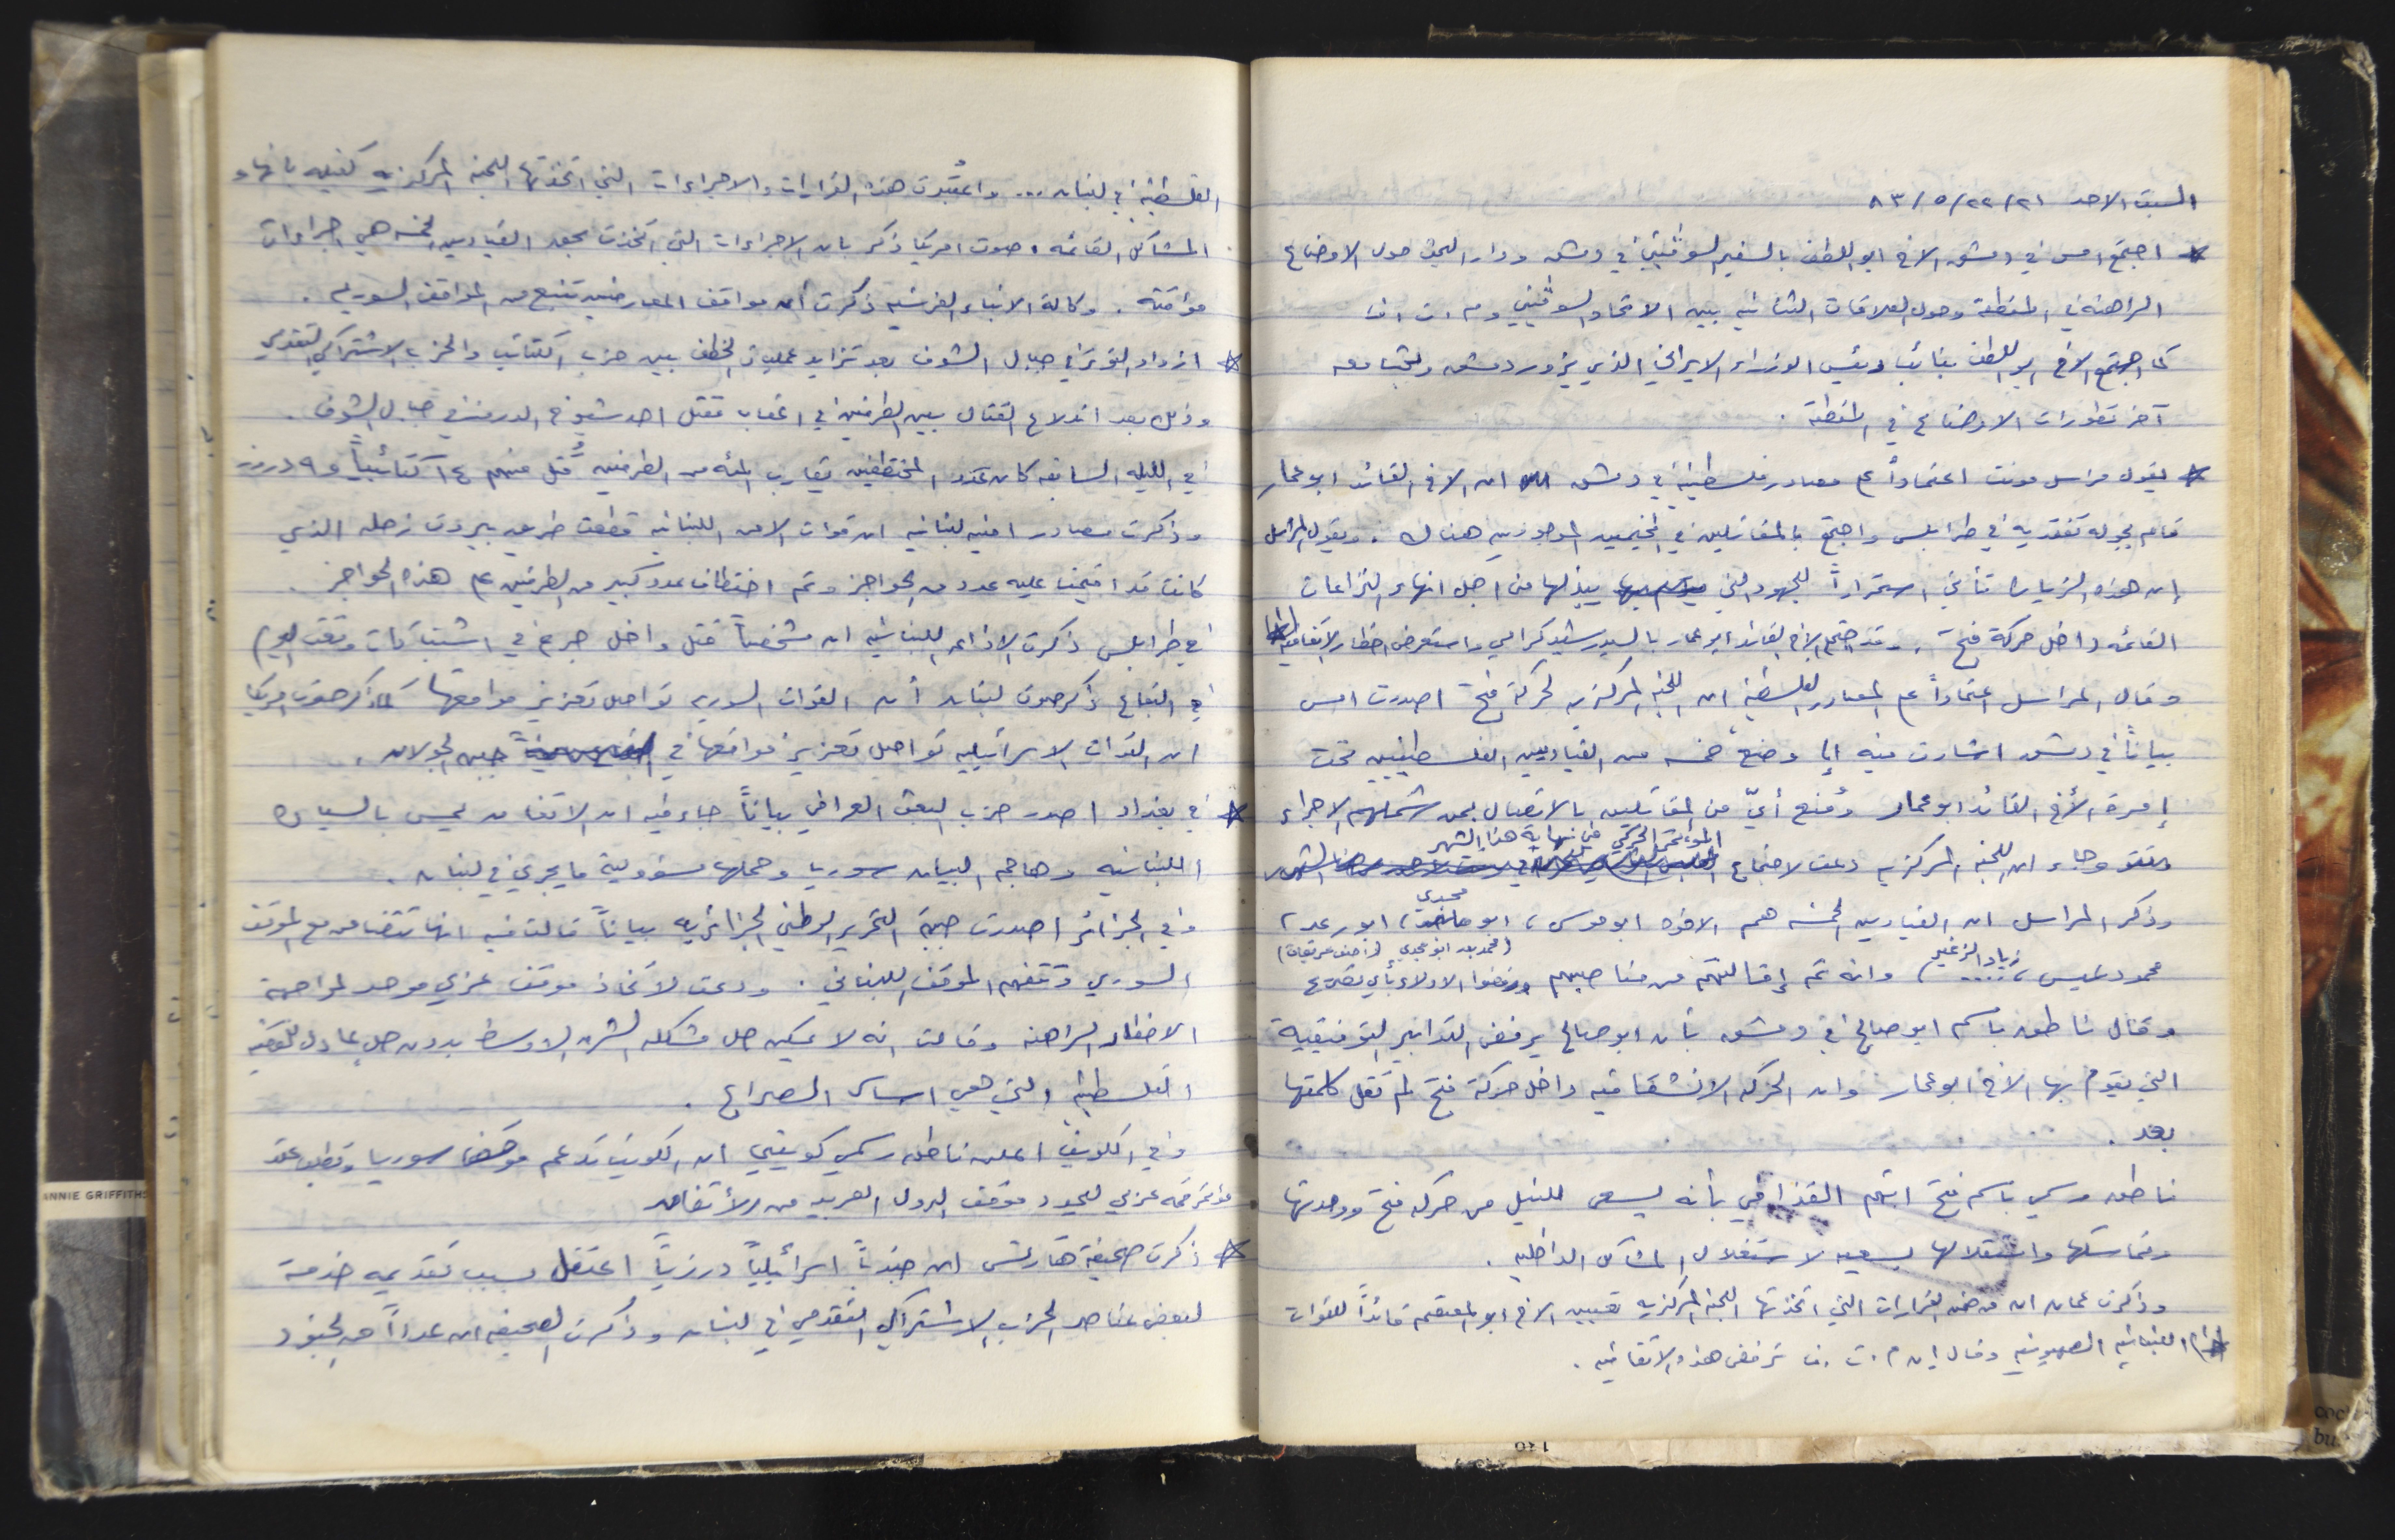 السبت الاحد ٢١/٢٢/٥/٨٣
* اجتمع امس في دمشق الاخ ابو اللطف بالسفير السوفيتي في دمشق ودار البحث حول الاوضاع
الراهنة في المنطقة وحول العلاقات الثنائيه بين الاتحاد السوفيتي و م.ت.ف
كما اجتمع الاخ ابو اللطف بنائب رئيس الوزراء الايراني الذي يزور دمشق وبحثا معه
آخر تطورات الاوضاع في المنطقة .
* يقول مراسل مونت اعتماداً على مصادر فلسطينية في دمشق ان الاخ القائد ابو عمار
قام بجوله تفقديه في طرابلس واجتمع بالمقاتلين في المخيمين الموجودين هناك . ويقول المراسل
إن هذه الزيارة تأتي استمراراً للجهود التي يبذلها من اجل انهاء النزاعات
القائمه داخل حركة فتح . وقد اجتمع الاخ القائد ابو عمار بالسيد رشيد كرامي واستعرض اخطار الاتفاقية
وقال المراسل اعتماداً على المصادر الفلسطينية ان اللجنه المركزيه لحركة فتح اصدرت امس
بياناً في دمشق اشارت فيه إلى وضع خمسه من القياديين الفلسطينيين تحت
إمرة الأخ القائد ابو عمار ومُنع أيّ من المقاتلين بالاتصال بمن شملهم الاجراء
وجاء ان اللجنه المركزيه دعت لاجتماع المؤتمر الحركي في نهاية هذا الشهر
وذكر المراسل ان القياديين الخمسه هم الاخوه ابو موسى ، ابو مجدي ، ابو رعد ،
(محمد بدر ابو مجدي)
محمود عيسى ، زياد الزغير ، وانه تم إقالتهم من مناصبهم ورفضوا الادلاء بأي تصريح
وقال ناطق باسم ابو صالح في دمشق بأن ابو صالح يرفض التدابير التوفيقية
التي يقوم بها الاخ ابو عمار وان الحركه الانشقاقيه داخل حركة فتح لم تقل كلمتها
بعد .
ناطق رسمي باسم فتح اتهم القذافي بأنه يسعى للنيل من حركه فتح ووحدتها
وتماسكها واستقلالها بسعيه لاستغلال المشاكل الداخليه .
وذكرت عمان ان من ضمن القرارات التي اتخذتها اللجنه المركزيه تعيين الاخ ابو المعتصم قائداً للقوات
اللبنانيه الصهيونيه وقال إن م.ت.ف ترفض هذه الاتفاقيه .
الفلسطينية في لبنان ... واعتُبرت هذه القرارات والاجراءات التي اتخذتها اللجنه المركزيه كفيله بانهاء
المشاكل القائمه . صوت امريكا ذكر بان الاجراءات التي اتخذت بحق القياديين الخمسه هي اجراءات
مؤقتة . وكالة الانباء الفرنسيه ذكرت أن مواقف المعارضين تنبع من المواقف السوريه .
* ازداد التوتر في جبال الشوف بعد تزايد عمليات الخطف بين حزب الكتائب والحزب الاشتراكي التقدمي
وذلك بعد اندلاع القتال بين الطرفين في اعقاب مقتل احد شيوخ الدروز في جبال الشوف .
في الليله السابقه كان عدد المختطفين يقارب المئه من الطرفين قُتل منهم ١٤ كتائبياً و ٩ دروز
وذكرت مصادر امنيه لبنانيه ان قوات الامن اللبنانيه قطعت طريق بيروت زحله الذي
كانت قد اقيمت عليه عدد من الحواجز وتم اختطاف عدد كبير من الطرفين على هذه الحواجز .
في طرابلس ذكرت الاذاعه اللبنانيه ان شخصاً قتل واخر جرح في اشتباكات وقعت اليوم
في البقاع ذكر صوت لبنان أن القوات السوريه تواصل تعزيز مواقعها كما ذكر صوت امريكا
ان القوات الاسرائيليه تواصل تعزيز مواقعها في جبهه الجولان .
* في بغداد اصدر حزب البعث العراقي بياناً جاء فيه ان الاتفاق يمس بالسيادة
اللبنانيه وهاجم البيان سوريا وحملها مسؤولية ما يجري في لبنان .
وفي الجزائر اصدرت جبهة التحرير الوطني الجزائريه بياناً قالت فيه انها تتضامن مع الموقف
السوري وتتفهم الموقف اللبناني . ودعت لاتخاذ موقف عربي موحد لمواجهة
الاخطار الراهنه وقالت انه لا يمكن حل مشكله الشرق الاوسط بدون حل عادل للقضيه
الفلسطينيه والتي هي اساس الصراع .
وفي الكويت اعلن ناطق رسمي كويتي ان الكويت تدعم موقف سوريا وتطلب عقد
مؤتمر قمه عربي لتحديد موقف الدول العربيه من الأتفاق
* ذكرت صحيفة هآرتس ان جندياً اسرائيلياً درزياً اعتقل بسبب تقديمه خدمة
لبعض عناصر الحزب الاشتراكي التقدمي في لبنان وذكرت الصحيفه ان عدداً من الجنود
ANNIE GRIFFITHS